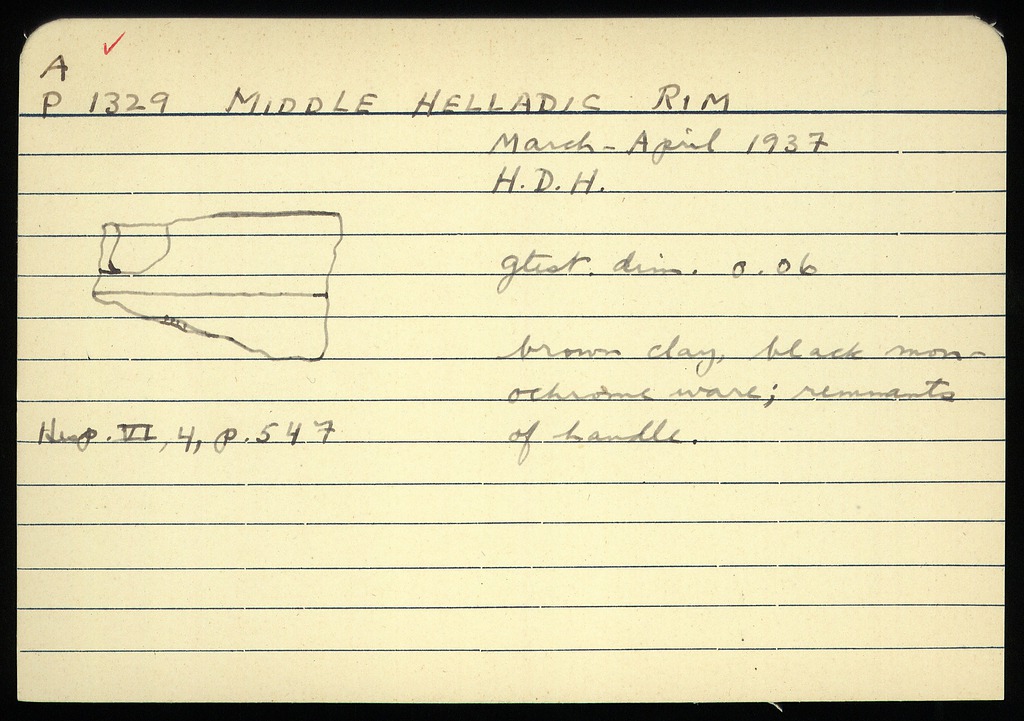 A
P 1329 MIDDLE HELLADIC RIM
March - April 1937
H. D. H.
gtest. dim. 0.06
brown clay, black mon-
ochrome ware; remnants
of handle.
Hesp. VI, 4, p. 547